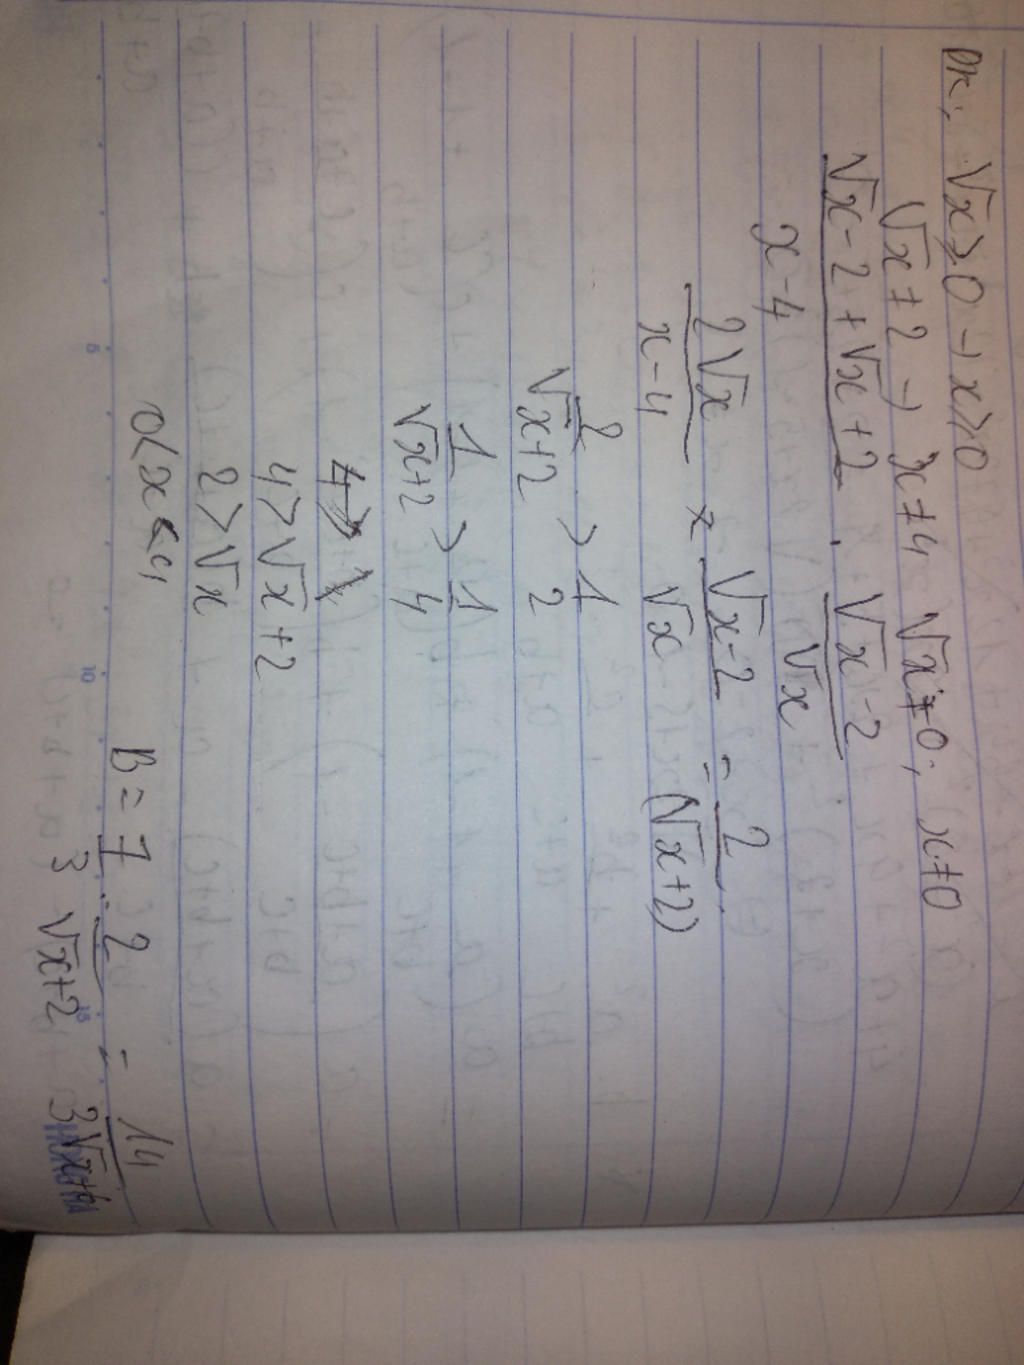 ĐK: √x ≥ 0 → x ≥ 0
√x ≠ 2 → x ≠ 4 √x ≠ 0; x ≠ 0
(√x - 2 + √x + 2)/(x - 4) · (√x - 2)/√x
(2√x)/(x - 4) × (√x - 2)/√x = 2/(√x + 2)
2/(√x + 2) > 1/2
1/(√x + 2) > 1/4
4 > √x + 2
2 > √x
0 < x < 4
B = 7/3 · 2/(√x + 2) = 14/(3√x + 6)
5
10
15